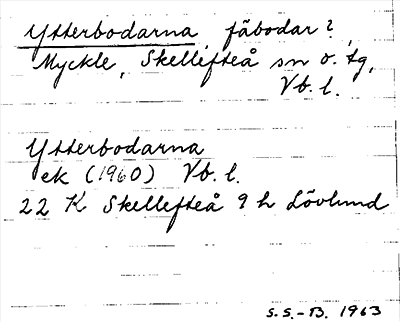 Ytterbodarna, fäbodar?
Myckle, Skellefteå sn o. tg,
Vb. l.
Ytterbodarna
ek (1960) Vb. l.
22 K Skellefteå 9 h Lövlund
S.S.-B. 1963